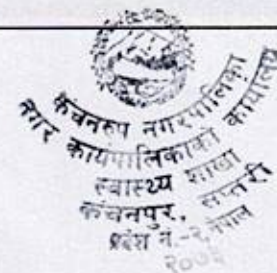 कंचनरुप नगरपालिका
नगर कार्यपालिकाको कार्यालय
स्वास्थ्य शाखा
कंचनपुर, सप्तरी
प्रदेश नं.-२, नेपाल
२०७३